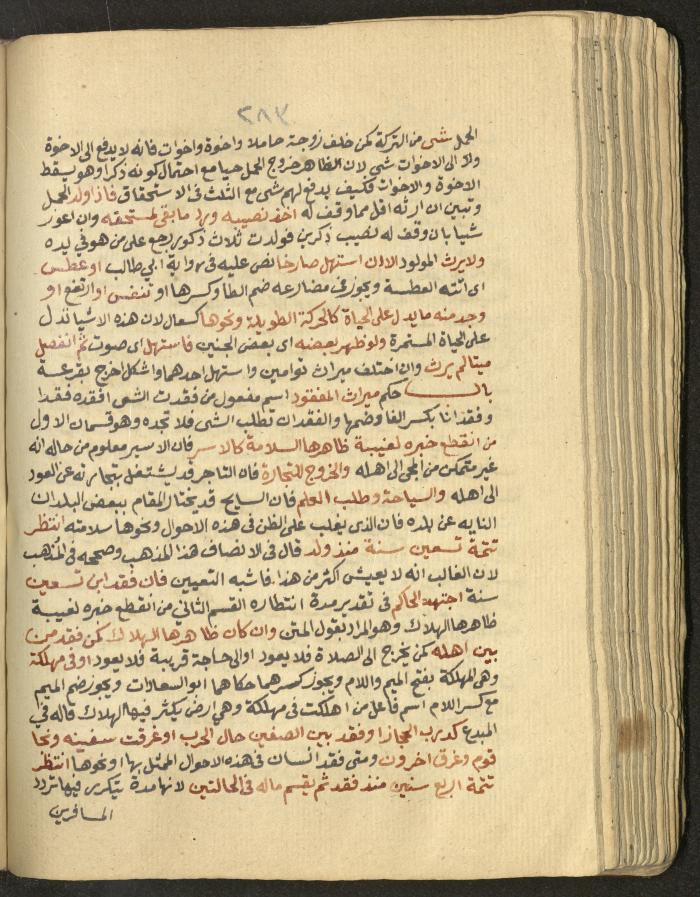 ٢٨٣
الحمل شى من التركة كمن خلف زوجة حاملا واخوة واخوات فانه لا يدفع الى الاخوة
ولا الى الاخوات شى لان الظاهر خروج الحمل حيا مع احتمال كونه ذكرا وهو يسقط
الاخوة والاخوات فكيف يدفع لهم شى مع الشك فى الاستحقاق فاذا ولد الحمل
وتبين ان ارثه اقل مما وقف له اخذ نصيبه ورد ما بقى لمستحقه وان اعوز
شيا بان وقف له نصيب ذكرين فولدت ثلاث ذكور رجع على من هو فى يده
ولا يرث المولود الا ان استهل صارخا نص عليه فى رواية ابى طالب او عطس
اى اتته العطسة ويجوز فى مضارعه ضم الطا وكسرها او تنفس او ارتضع او
وجد منه ما يدل على الحياة كالحركة الطويلة ونحوها كسعال لان هذه الاشيا تدل
على الحياة المستمرة ولو ظهر بعضه اى بعض الجنين فاستهل اى صوت ثم انفصل
ميتا لم يرث وان اختلف ميراث توامين واستهل احدهما واشكل اخرج بقرعة
باب حكم ميراث المفقود اسم مفعول من فقدت الشى افقده فقدا
وفقدانا بكسر الفا وضمها والفقدان تطلب الشى فلا تجده وهو قسمان الاول
من انقطع خبره لغيبة ظاهرها السلامة كالاسر فان الاسير معلوم من حاله انه
غير متمكن من المجى الى اهله والخروج للتجارة فان التاجر قد يشتغل بتجارته عن العود
الى اهله والسياحة وطلب العلم فان السايح قد يختار المقام ببعض البلدان
النايه عن بلده فان الذى يغلب على الظن فى هذه الاحوال ونحوها سلامته انتظر
تتمة تسعين سنة منذ ولد قال فى الانصاف هذا المذهب وصححه فى المذهب
لان الغالب انه لا يعيش اكثر من هذا فاشبه التعيين فان فقد ابن تسعين
سنة اجتهد الحاكم فى تقدير مدة انتظاره القسم الثانى من انقطع خبره لغيبة
ظاهرها الهلاك وهو المراد بقول المتن وان كان ظاهرها الهلاك كمن فقد من
بين اهله كمن يخرج الى الصلاة فلا يعود او الى حاجة قريبة فلا يعود او فى مهلكة
وهى المهلكة بفتح الميم واللام ويجوز كسرهما حكاهما ابو السعادات ويجوز ضم الميم
مع كسر اللام اسم فاعل من اهلكت فى مهلكة وهى ارض يكثر فيها الهلاك قاله فى
المبدع كدرب الحجاز او فقد بين الصفين حال الحرب او غرقت سفينة ونجا
قوم وغرق اخرون ومتى فقد انسان فى هذه الاحوال الممثل بها او نحوها انتظر
تتمة اربع سنين منذ فقد ثم يقسم ماله فى الحالتين لانها مدة يتكرر فيها تردد
المسافرين